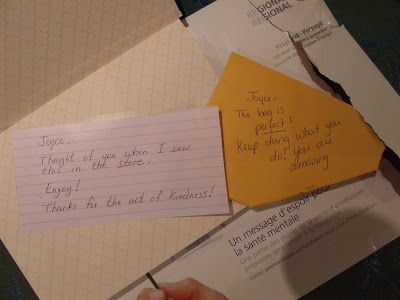 REGIONAL
REGIONAL
Joyce,
Thought of you when I saw
this in the store.
Enjoy!
Thanks for the act of kindness!
Joyce-
The bag is
perfect!
Keep doing what you
do! You are
amazing
Un message d'espoir pour
la santé mentale